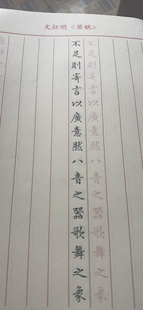 文征明《琴賦》
不足則寄言以廣意然八音之器歌舞之象
不足則寄言以廣意然八音之器歌舞之象